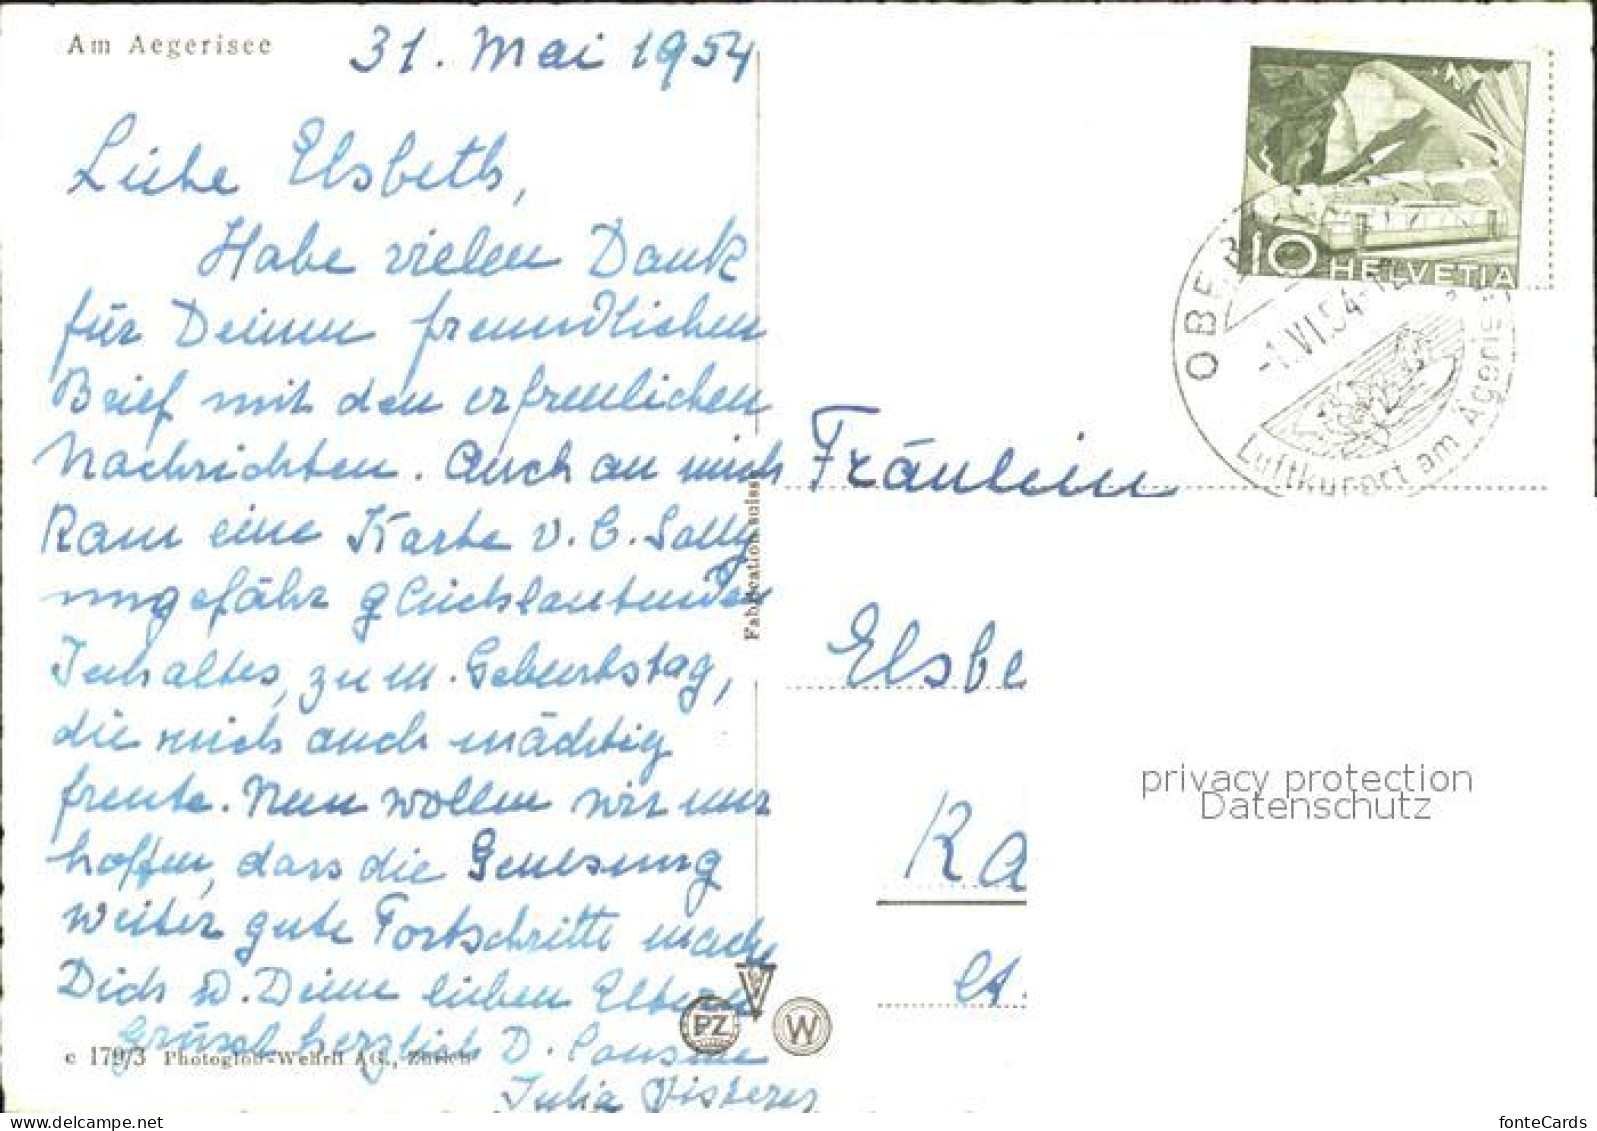 Am Aegerisee
31. Mai 1954
Liebe Elsbeth,
Habe vielen Dank
für Deinen freundlichen
Brief mit den erfreulichen
Nachrichten. Auch an mich
kam eine Karte v. C. Sally
ungefähr gleichlautenden
Inhaltes, zu m. Geburtstag,
die mich auch mächtig
freute. Nun wollen wir nur
hoffen, dass die Genesung
weiter gute Fortschritte mache
Dich u. Deine lieben Eltern
Grüsst herzlich D. Cousine
Julia
c 179/3 Photoglob-Wehrli AG., Zürich
Fabrication suisse
PZ
W
10 HELVETIA
-1.VI.54-12
Luftkurort am Ägeris
Fräulein
Elsbe
Ra
privacy protection
Datenschutz
fonteCards
www.delcampe.net